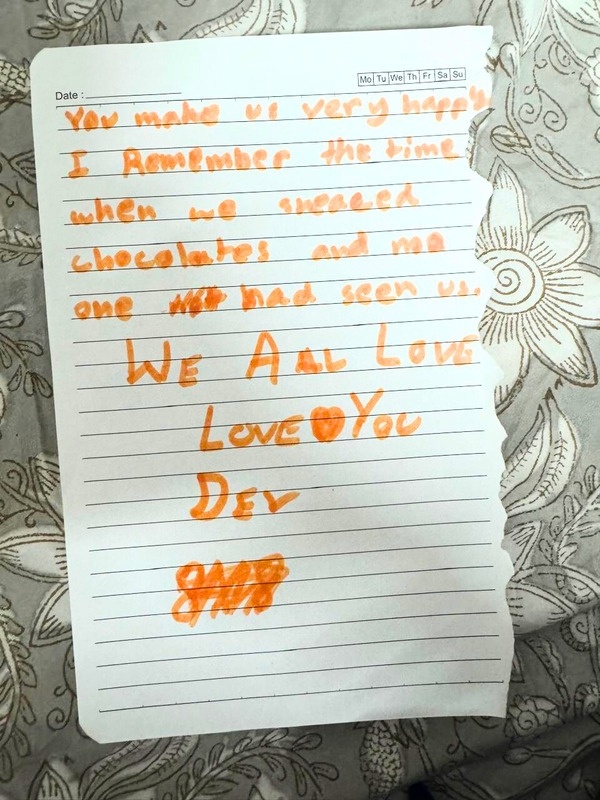 Date :
Mo Tu We Th Fr Sa Su
You make us very happy
I Remember the time
when we sneaced
chocolates and no
one had seen us.
WE ALL LOVE
LOVE YOU
DEV